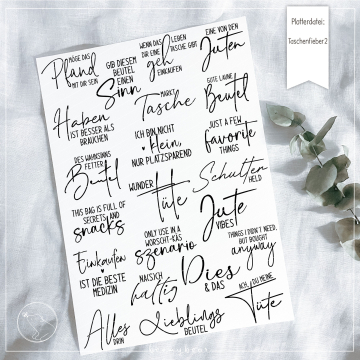 Plotterdatei:
Taschenfieber2
MÖGE DAS
Pfand
MIT DIR SEIN
GIB DIESEM
BEUTEL
EINEN
Sinn
WENN DAS LEBEN
DIR EINE TASCHE GIBT
geh
EINKAUFEN
EINE VON DEN
Juten
Haben
IST BESSER ALS
BRAUCHEN
MARKT
Tasche
GUTE LAUNE
Beutel
ICH BIN NICHT
klein,
NUR PLATZSPAREND
JUST A FEW
favorite
THINGS
DES WAHNSINNS
FETTER
Beutel
WUNDER
Tüte
Schulter
HELD
THIS BAG IS FULL OF
SECRETS AND
snacks
Jute
VIBES
ONLY USE IN A
WORSCHT-KÄS
szenario
THINGS I DIDN'T NEED,
BUT BOUGHT
anyway
Einkaufen
IST DIE BESTE
MEDIZIN
NAISICH
haltig
Dies
& DAS
ACH, DU MEINE
Tüte
Alles
DRIN
Lieblings
BEUTEL